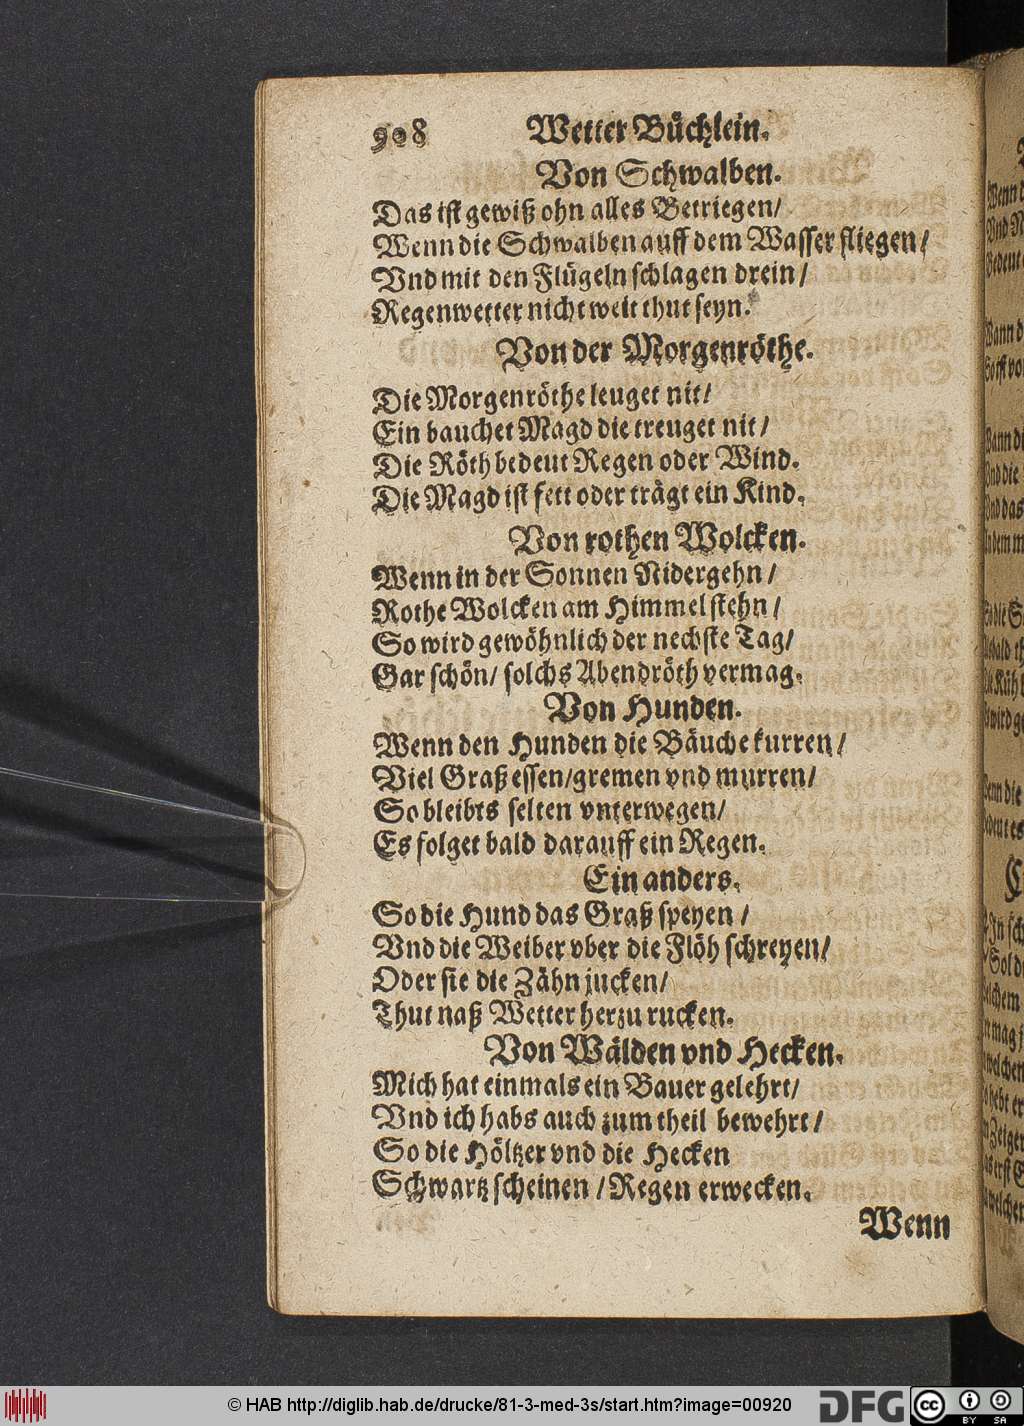 908 Wetter Büchlein.
Von Schwalben.
Das ist gewiß ohn alles Betriegen/
Wenn die Schwalben auff dem Wasser fliegen/
Vnd mit den Flügeln schlagen drein/
Regenwetter nicht weit thut seyn.
Von der Morgenröthe.
Die Morgenröthe leuget nit/
Ein bauchet Magd die treuget nit/
Die Röth bedeut Regen oder Wind.
Die Magd ist fett oder trägt ein Kind.
Von rothen Wolcken.
Wenn in der Sonnen Nidergehn/
Rothe Wolcken am Himmel stehn/
So wird gewöhnlich der nechste Tag/
Gar schön/ solchs Abendröth vermag.
Von Hunden.
Wenn den Hunden die Bäuche kurren/
Viel Graß essen/gremen vnd murren/
So bleibts selten vnterwegen/
Es folget bald darauff ein Regen.
Ein anders.
So die Hund das Graß speyen/
Vnd die Weiber vber die Flöh schreyen/
Oder sie die Zähn jucken/
Thut naß Wetter herzu rucken.
Von Wälden vnd Hecken.
Mich hat einmals ein Bauer gelehrt/
Vnd ich habs auch zum theil bewehrt/
So die Höltzer vnd die Hecken
Schwartz scheinen/Regen erwecken.
Wenn
© HAB http://diglib.hab.de/drucke/81-3-med-3s/start.htm?image=00920
DFG
cc BY SA